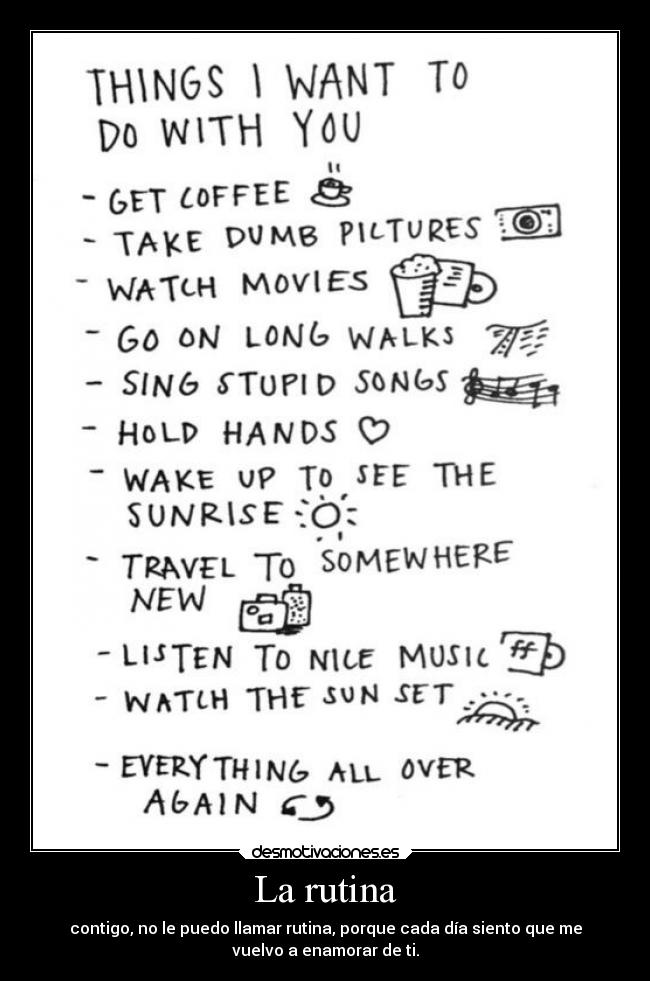 THINGS I WANT TO
DO WITH YOU
- GET COFFEE
- TAKE DUMB PICTURES
- WATCH MOVIES
- GO ON LONG WALKS
- SING STUPID SONGS
- HOLD HANDS
- WAKE UP TO SEE THE
SUNRISE
- TRAVEL TO SOMEWHERE
NEW
- LISTEN TO NICE MUSIC
ff
- WATCH THE SUN SET
- EVERYTHING ALL OVER
AGAIN
desmotivaciones.es
La rutina
contigo, no le puedo llamar rutina, porque cada día siento que me
vuelvo a enamorar de ti.